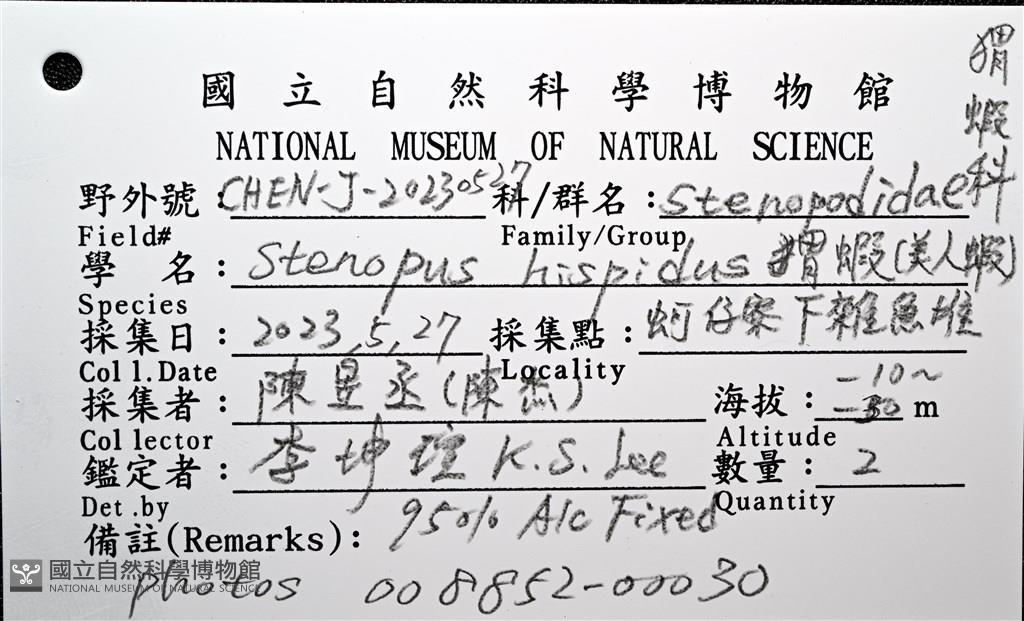 國立自然科學博物館
NATIONAL MUSEUM OF NATURAL SCIENCE
野外號: CHEN-J-20230527 科/群名: Stenopodidae 猬蝦科
Field# Family/Group
學名: Stenopus hispidus 猬蝦(美人蝦)
Species
採集日: 2023,5,27 採集點: 蚵仔寮下雜魚堆
Coll.Date Locality
採集者: 陳昱丞(陳杰) 海拔: -10~-30 m
Collector Altitude
鑑定者: 李坤瑄 K.S. Lee 數量: 2
Det.by Quantity
備註(Remarks): 95% Alc Fixed
photos 008852-00030
國立自然科學博物館
NATIONAL MUSEUM OF NATURAL SCIENCE